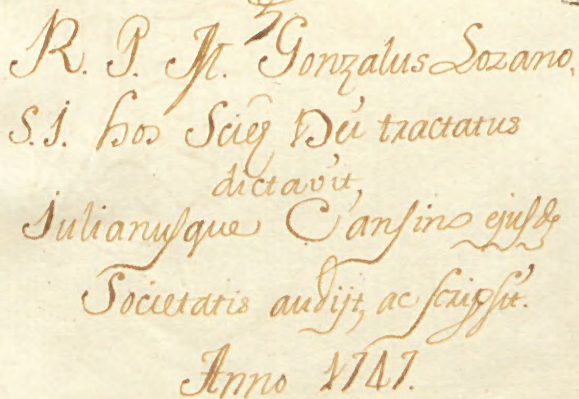 R. P. M. Gonzalus Lozano,
S.J. hos Sciẽ Dei tractatus
dictavit,
Iulianusque Cansino ejusdẽ
Societatis audijt, ac scripsit.
Anno 1747.